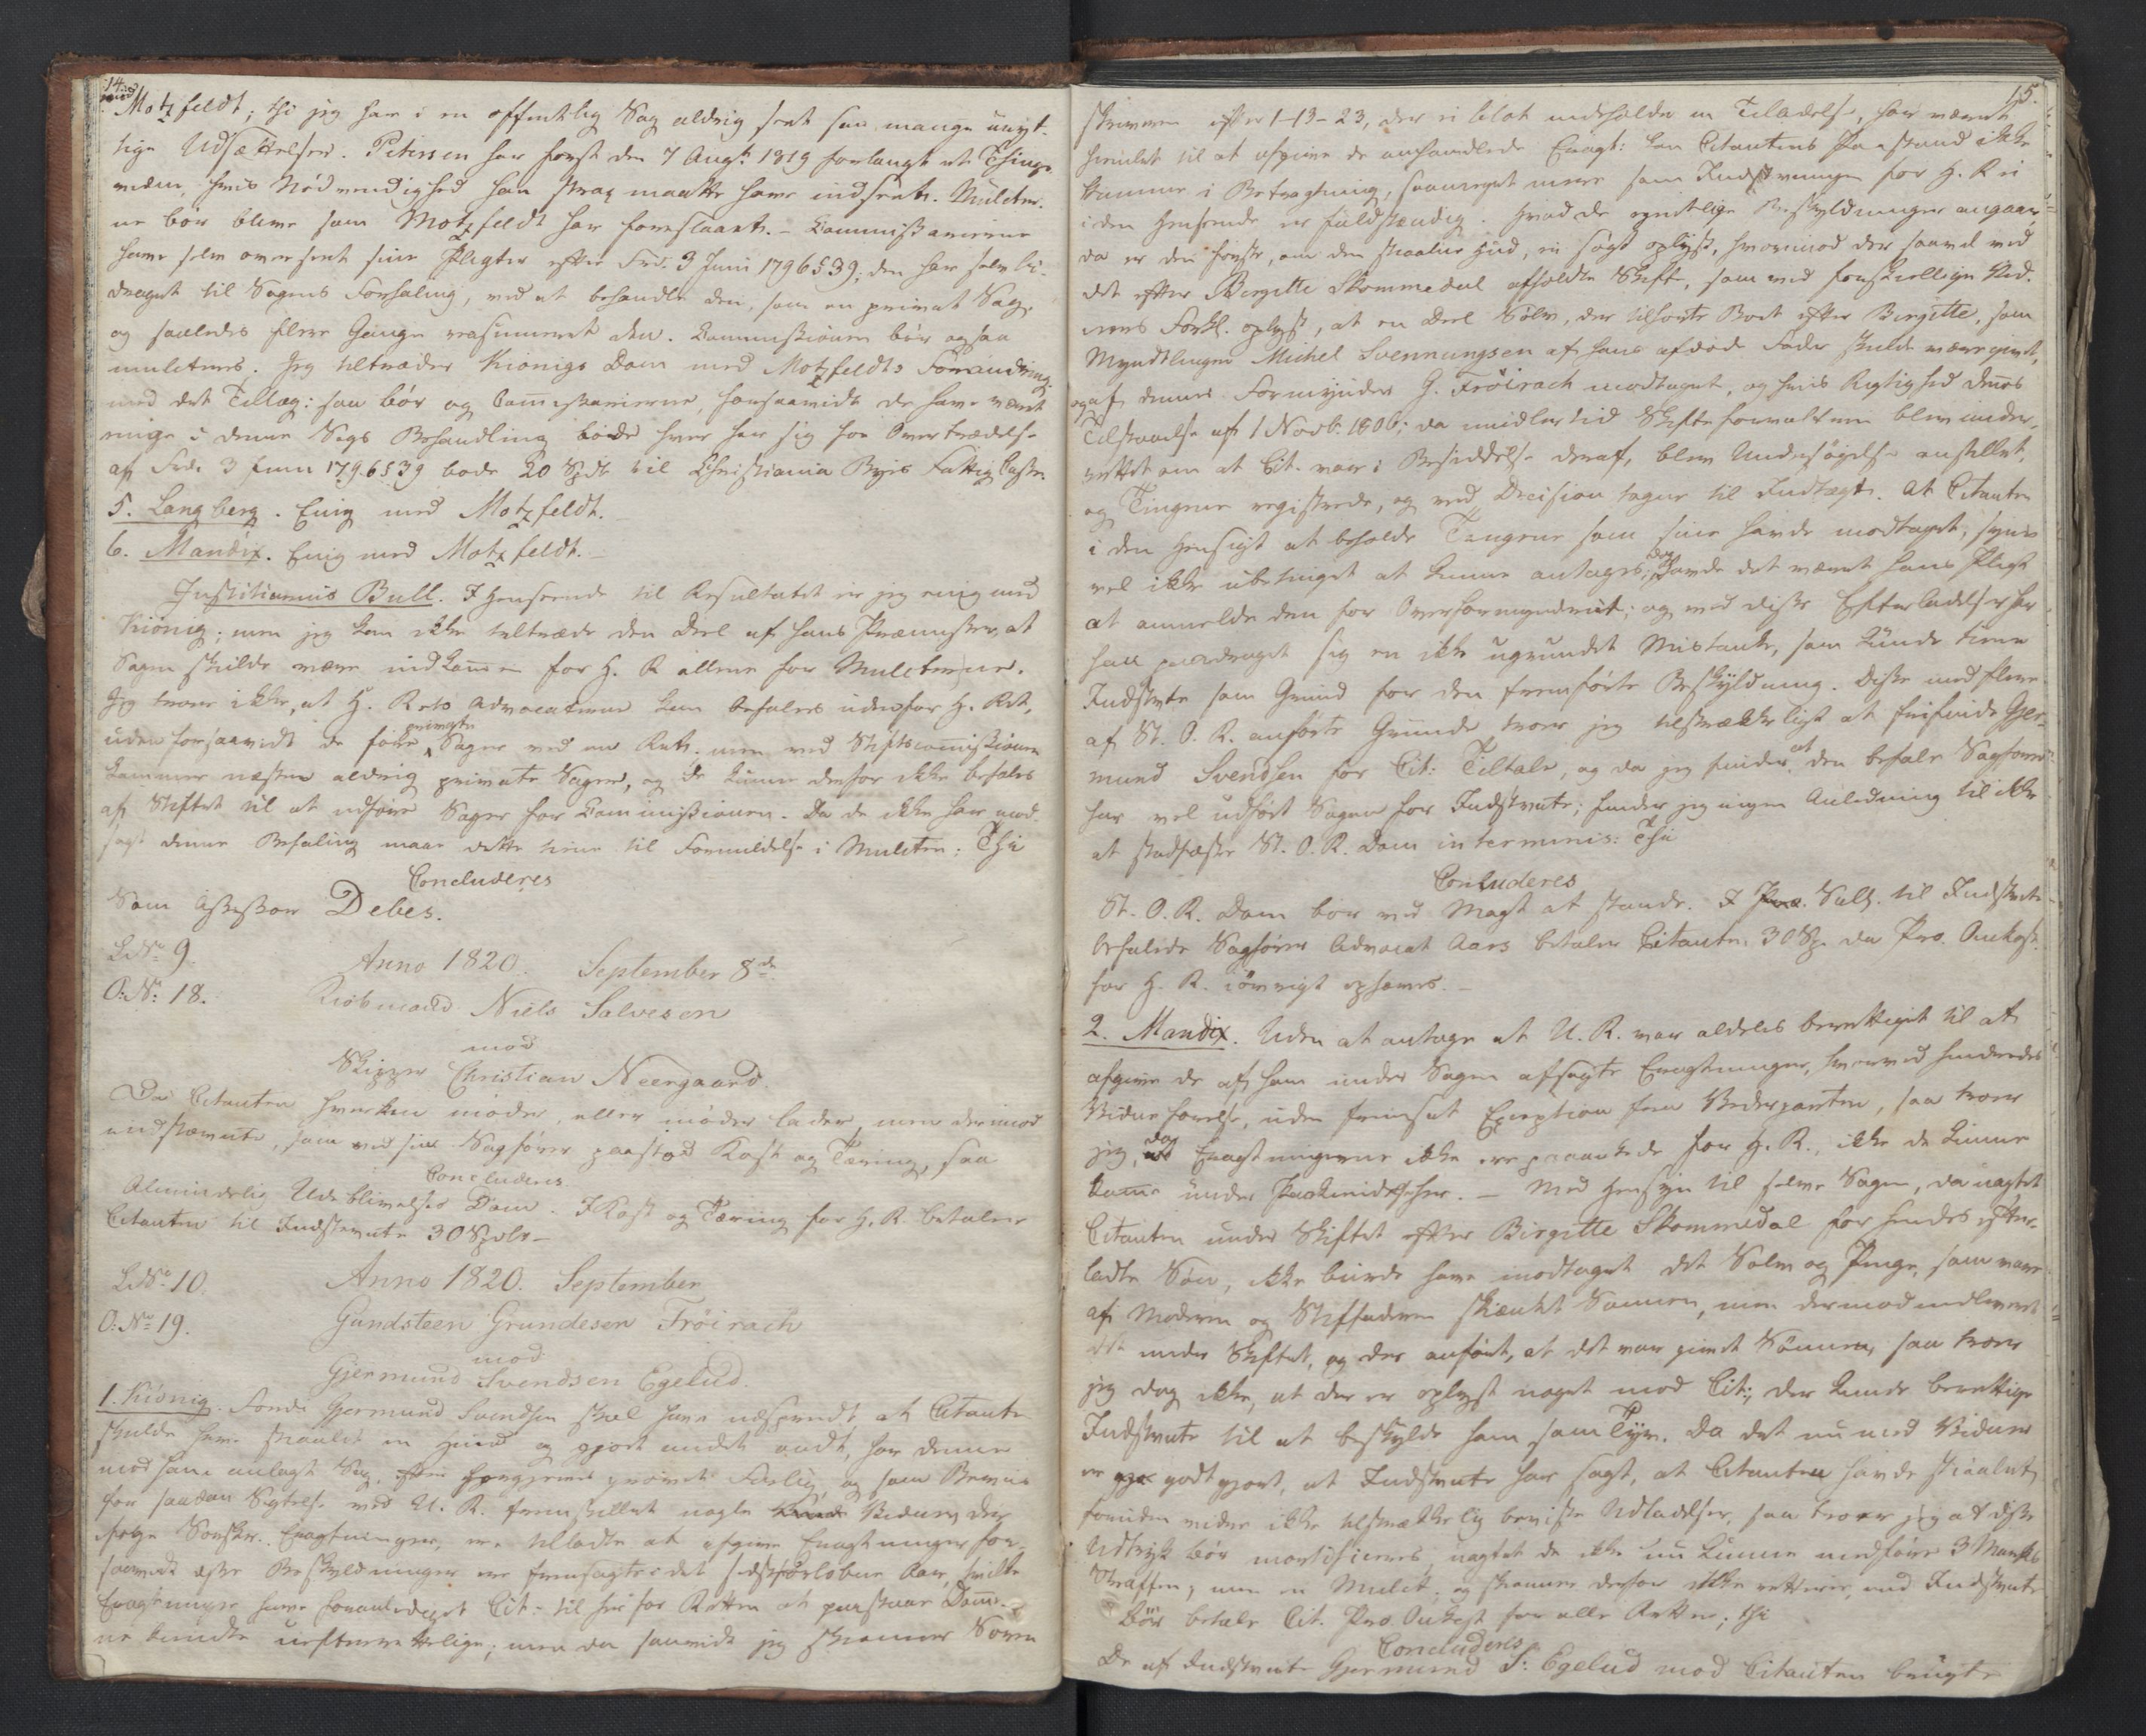 14.
med
Motzfeldt; thi jeg har i en offentlig Sag aldrig seet saa mange unyt-
tige Udsættelser. Petersen har først den 7 Augst: 1819 forlangt et Things
vidne, hvis Nødvendighed han strax maatte have indseet. Mulcter-
ne bør blive som Motzfeldt har foreslaaet. - Commissairerne
have selv overseet sine Pligter efter Frd. 3 Juni 1796 § 39; den har selv bi-
draget til Sagens Forhaling, ved at behandle den, som en privat Sag,
og saaledes flere Gange reassumeret den. Commissionen bør ogsaa
mulcteres. Jeg tiltræder Kiønigs Dom med Motzfeldts Forandring
med det Tillæg: saa bør og Commissairerne, forsaavidt de have været
enige i denne Sags Behandling bøde hver for sig for Overtrædelse
af Frd. 3 Juni 1796 § 39 bøde 20 Spd. til Christiania Byes Fattig Casse.
5. Langberg. Enig med Motzfeldt.
6. Mandix. Enig med Motzfeldt.
Justitiarius Bull. I Henseende til Resultatet er jeg enig med
Kiønig; men jeg kan ikke tiltræde den Deel af hans Præmisser, at
Sagen skulde være indkommen for H. R. allene for Mulcterne.
Jeg troer ikke, at H. Rets Advocaterne kan befales udenfor H. Ret,
uden forsaavidt de føre private Sager ved en Ret. men ved Stiftscommissionen
kommer næsten aldrig private Sager, og de kunne derfor ikke befales
af Stiftet til at udføre Sager for Commissionen. Da de ikke har mod-
sagt denne Befaling maae dette tiene til Formildelse i Mulcten: Thi
Concluderes
Som Assessor Debes.
L. No. 9. Anno 1820. September 8de
P: No: 18. Kiøbmand Niels Salvesen
mod
Skipper Christian Neergaard.
Da Citanten hverken møder eller møder lader, men derimod
indstævnte, som ved sin Sagfører paastod Kost og Tæring, saa
Concluderes
Almindelig Udeblivelses Dom. I Kost og Tæring for H. R. betaler
Citanten til Indstevnte 30 Spdlr -
L. No. 10. Anno 1820. September
O: No. 19. Gundsteen Grundesen Frøirach
mod
Gjermund Svendsen Egelud.
1. Kiønig. Fordi Gjermund Svendsen skal have udspredt, at Citanten
skulde have stiaalet en Huud og gjort andet ondt, har denne
mod ham anlagt Sag, efter foregaaende prøvet Forlig, og som Beviis
for saadan Sigtelse ved U. R. fremstillet nogle Vidner, der
ifølge Sorskr. Eragtninger, ere tilladte at afgive Eragtninger for-
saavidt disse Beskyldninger ere fremsagte i det sidstforløbne Aar, hvilke
Eragtninger have foranlediget Cit: til her for Retten at paastaae Dom-
ne kiendte uefterrettelige; men da saavidt jeg skiønner Soren
15.
skriveren efter 1-13-23, der ei blot indeholder en Tilladelse, har været
hiemlet til at afgive de omhandlede Eragt: kan Citantens Paastand ikke
komme i Betragtning, saameget mere som Indstevningen for H. R. ei
i den Henseende er fuldstændig. Hvad de egentlige Beskyldninger angaaer,
da er den første, om den stiaalne Hud, ei søgt oplyst, hvorimod der saavel ved
det efter Birgitte Skommedal afholdte Skifte, som ved forskiellige Vid-
ners Forkl. oplyst, at en Deel Sølv, der tilhørte Boet efter Birgitte, som
Myndtlingen Michel Svennungsen af hans afdøde Fader skulde være givet,
og af dennes Formynder G. Frøirach modtaget, og hvis Rigtighed dennes
Tilstaaelse af 1 Novb. 1806; da imidlertid Skifteforvalteren blev under-
rettet om at Cit. var i Besiddelse deraf, blev Undersøgelse anstillet,
og Tingene registrede, og ved Decision tagne til Indtægt. At Citanten
i den Hensigt at beholde Tingene som sine havde modtaget, synes
vel ikke ubetinget at kunne antages; dog havde det været hans Pligt
at anmelde den for Overformynderiet; og ved disse Efterladelser har
han paadraget sig en ikke ugrundet Mistanke, som kunde tiene
Indstvte som Grund for den fremførte Beskyldning. Disse med flere
af St. O. R. anførte Grunde troer jeg tilstrækkeligt at frifinde Gjer-
mund Svendsen for Cit: Tiltale, og da jeg finder at den befale Sagfører
har vel udført Sagen for Indstvnte; finder jeg ingen Anledning til ikke
at stadfæste St. O. R. Dom in terminis: Thi
Concluderes
St. O. R. Dom bør ved Magt at stande. I Salg. til Indstvnte
befalede Sagfører Advocat Aars betaler Citanten 30 Sp. da Pro. Omkost.
for H. R. iøvrigt ophæves. -
2. Mandix. Uden at antage at U. R. var aldeles berettiget til at
afgive de af ham under Sagen afsagte Eragtninger, hvorved hindredes
Vidneførelse, uden fremsat Exception fra Vederparten, saa troer
jeg, da Eragtningerne ikke ere paaankede for H. R., ikke de kunne
komme under Paakiendelse her. - Med Hensyn til selve Sagen, da uagtet
Citanten under Skiftet efter Birgitte Skommedal for hendes efter-
ladte Søn, ikke burde have modtaget det Sølv og Penge, som vare
af Moderen og Stiffaderen skiænket Sønnen, men derimod indleveret
det under Skiftet, og der anført, at det var givet Sønnen, saa troer
jeg dog ikke, at der er oplyst noget mod Cit:, der kunde berettige
Indstvnte til at beskylde ham som Tyv. Da det nu med Vidner
er godtgjort, at Indstvnte har sagt, at Citanten havde stiaalet,
foruden andre ikke tilstrækkelig beviste Udladelser, saa troer jeg at disse
Udtryk bør mortificeres, uagtet de ikke nu kunne medføre 3 Marks
Straffen, men en Mulct, og skiønner derfor ikke rettere, end Indstvnte
bør betale Cit. Pro Omkost for alle Retter; thi
Concluderes
De af Indstvnte Gjermund S: Egelud mod Citanten brugte